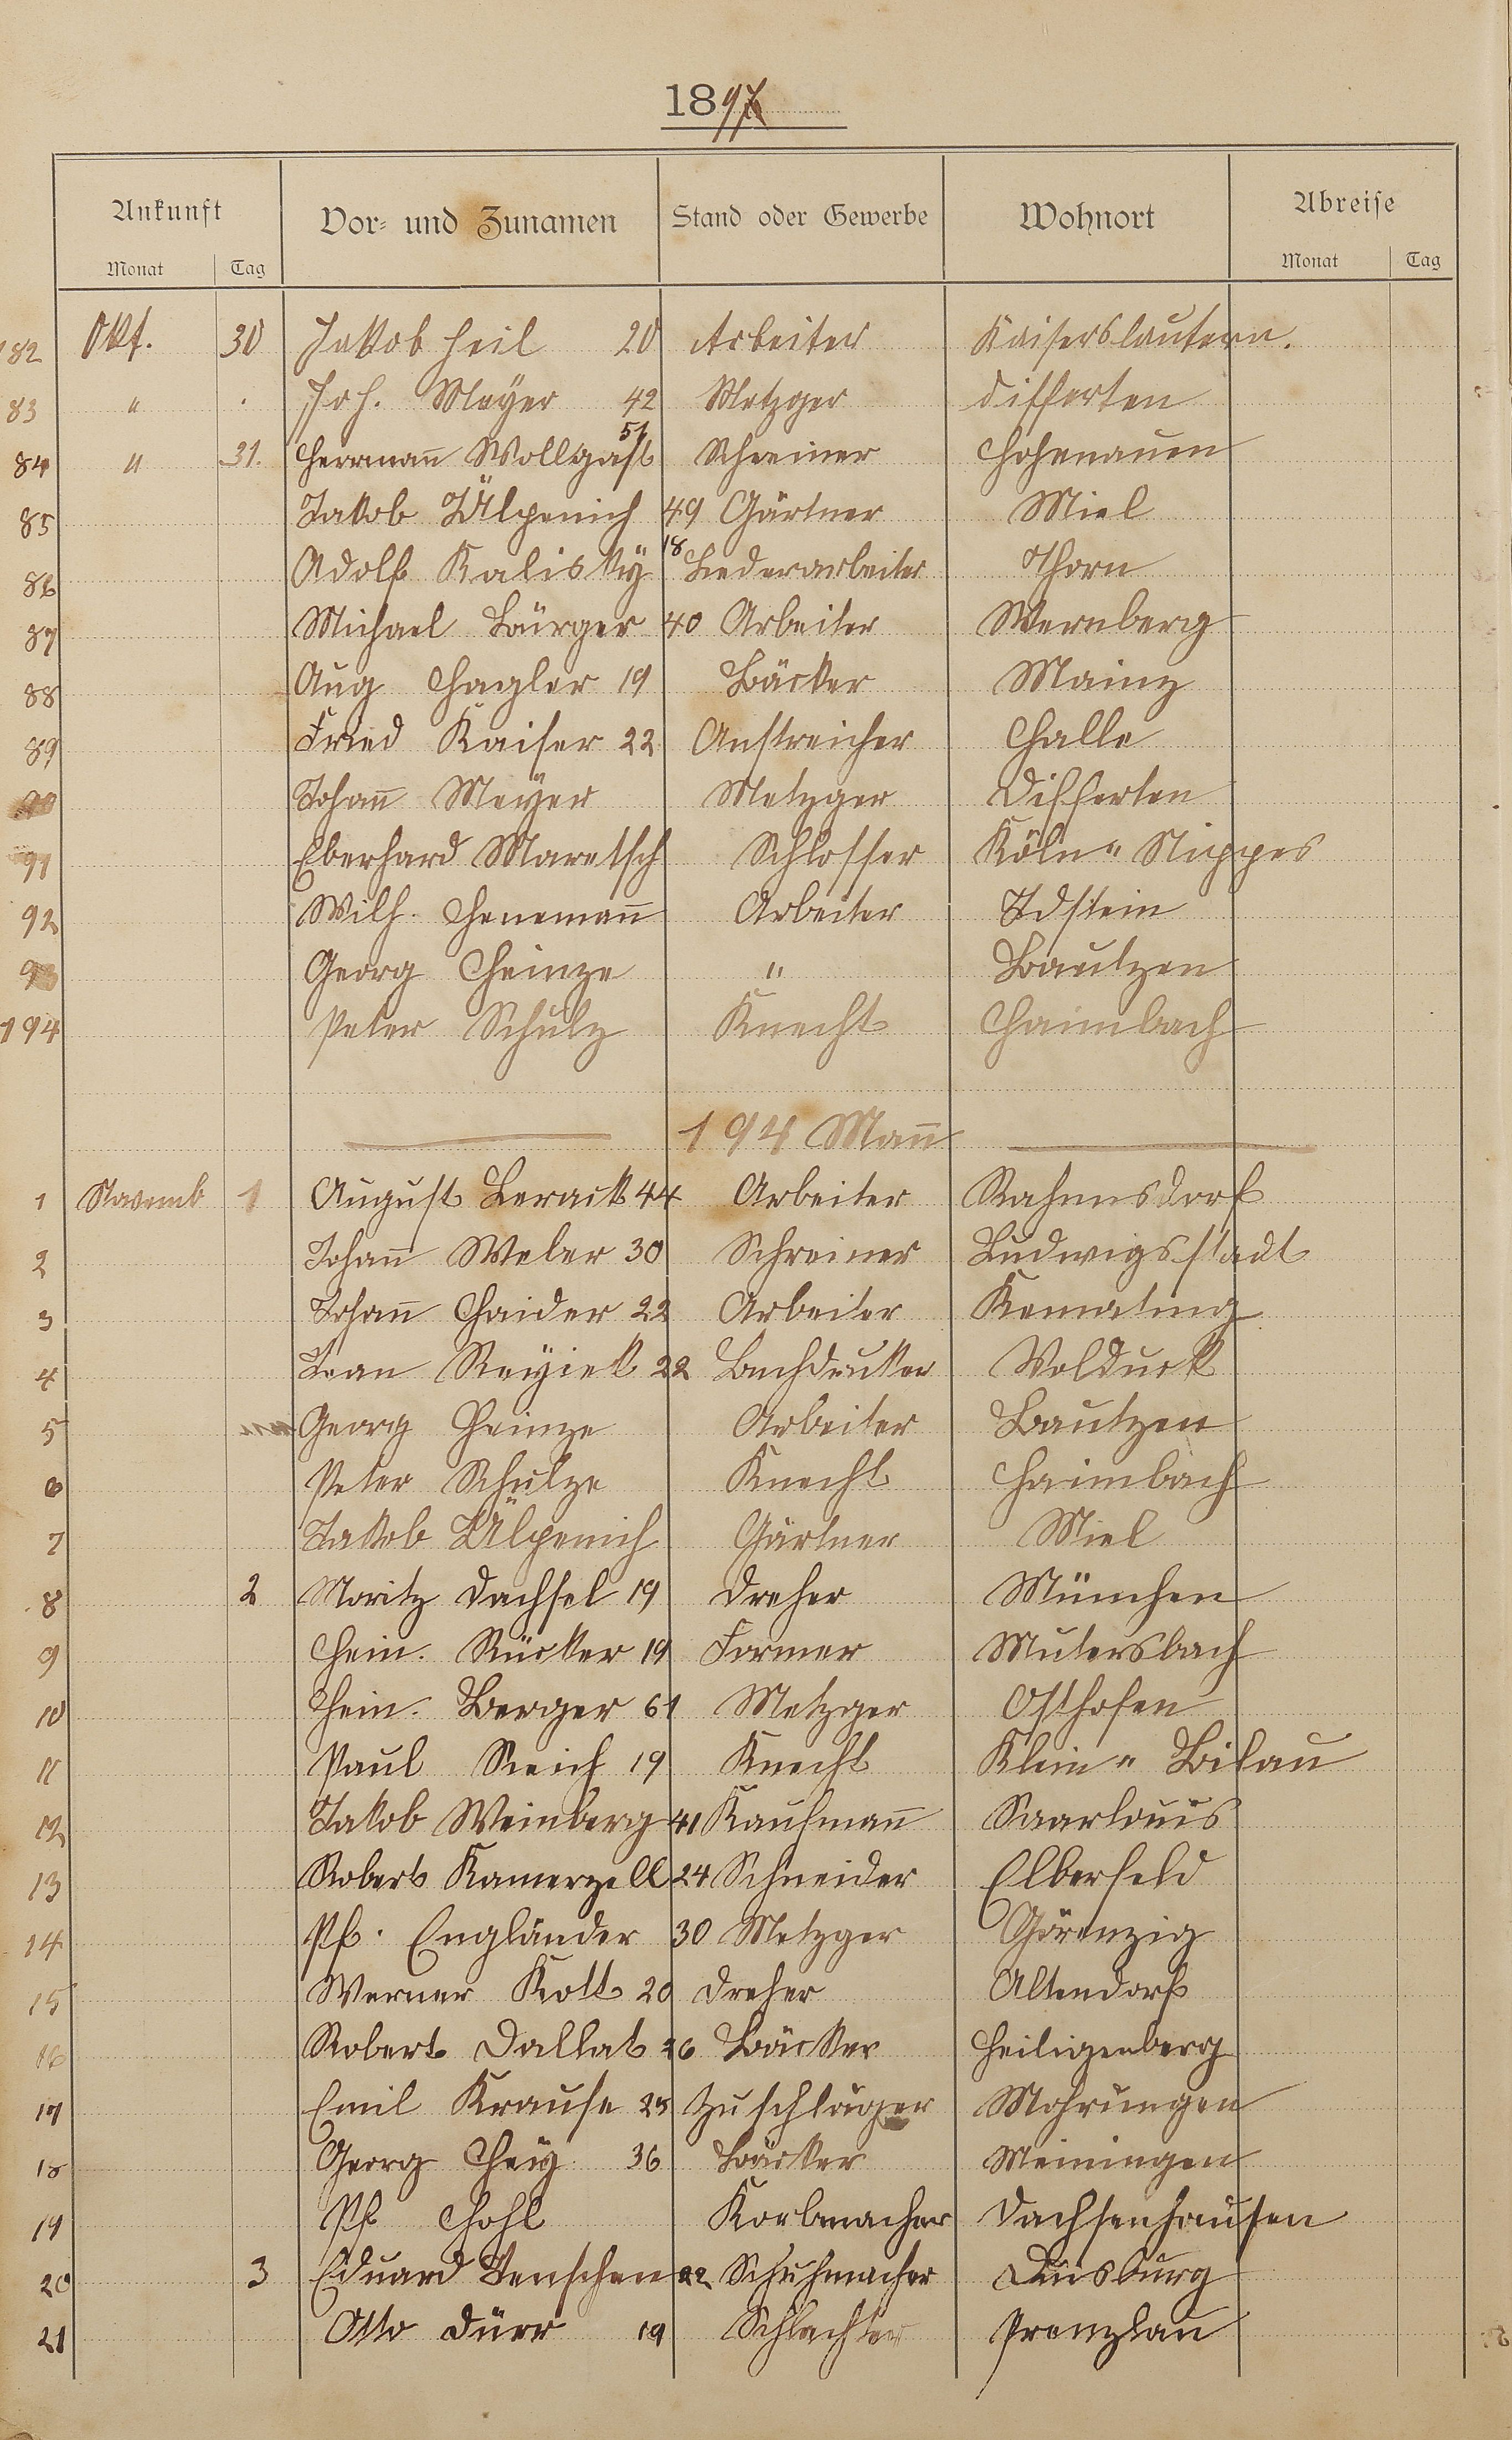 1897
Ankunft Vor- und Zunamen Stand oder Gewerbe Wohnort Abreise
Monat Tag Monat Tag
182 Okt. 30 Jakob Heil 20 Arbeiter Kaiserslautern.
83 " . Joh. Meÿer 42 Metzger Differten
84 " 31. Herrmann Wollgast 51 Schreiner Hohenauen
85 Jakob Ülpenich 49 Gärtner Miel
86 Adolf Kaliskÿ 18 Lederarbeiter Thorn
87 Michael Bürger 40 Arbeiter Wernberg
88 Aug Hagler 19 Bäcker Mainz
89 Fried Kaiser 22 Anstreicher Halle
90 Johann Meÿer Metzger Differten
91 Eberhard Maretsch Schlosser Köln " Nippes
92 Wilh. Henemann Arbeiter Idstein
93 Georg Heinze " Bautzen
194 Peter Schulz Knecht Haimbach
194 Mann
1 Novemb 1 August Berack 44 Arbeiter Rahmsdorf
2 Johann Weber 30 Schreiner Ludwigsstadt
3 Johann Haider 22 Arbeiter Kemating
4 Jean 22 Buchdrucker Wolduck
5 Georg Heinze Arbeiter Bautzen
6 Peter Schulze Knecht Haimbach
7 Jakob Ülpenich Gärtner Miel
8 2 Moritz Dachsel 19 Dreher München
9 Hein. Rücker 19 Former Mutersbach
10 Hein. Berger 61 Metzger Osthofen
11 Paul Reich 19 Knecht Klein " Bilau
12 Jakob Weinberg 41 Kaufmann Saarlouis
13 Robert Kamerzell 24 Schneider Elberfeld
14 Ph. Engländer 30 Metzger Görenzig
15 Werner Kott 20 Dreher Altendorf
16 Robert Dallat 26 Bäcker Heiligenberg
17 Emil Krause 25 Zuschläger Mohrungen
18 Georg Heÿ 36 Bäcker Meiningen
19 Ph Hohl Korbmacher Dachsenhausen
20 3 Eduard Jenschen 22 Schuhmacher Duisburg
21 Otto Dürr 19 Schlachter Prenzlau